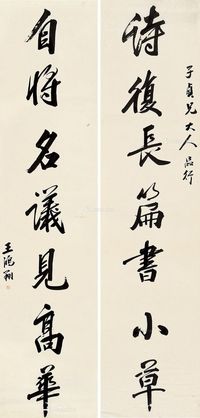 詩復長篇書小草
子貞兄大人品行
自將名議見高華
王鴻翔